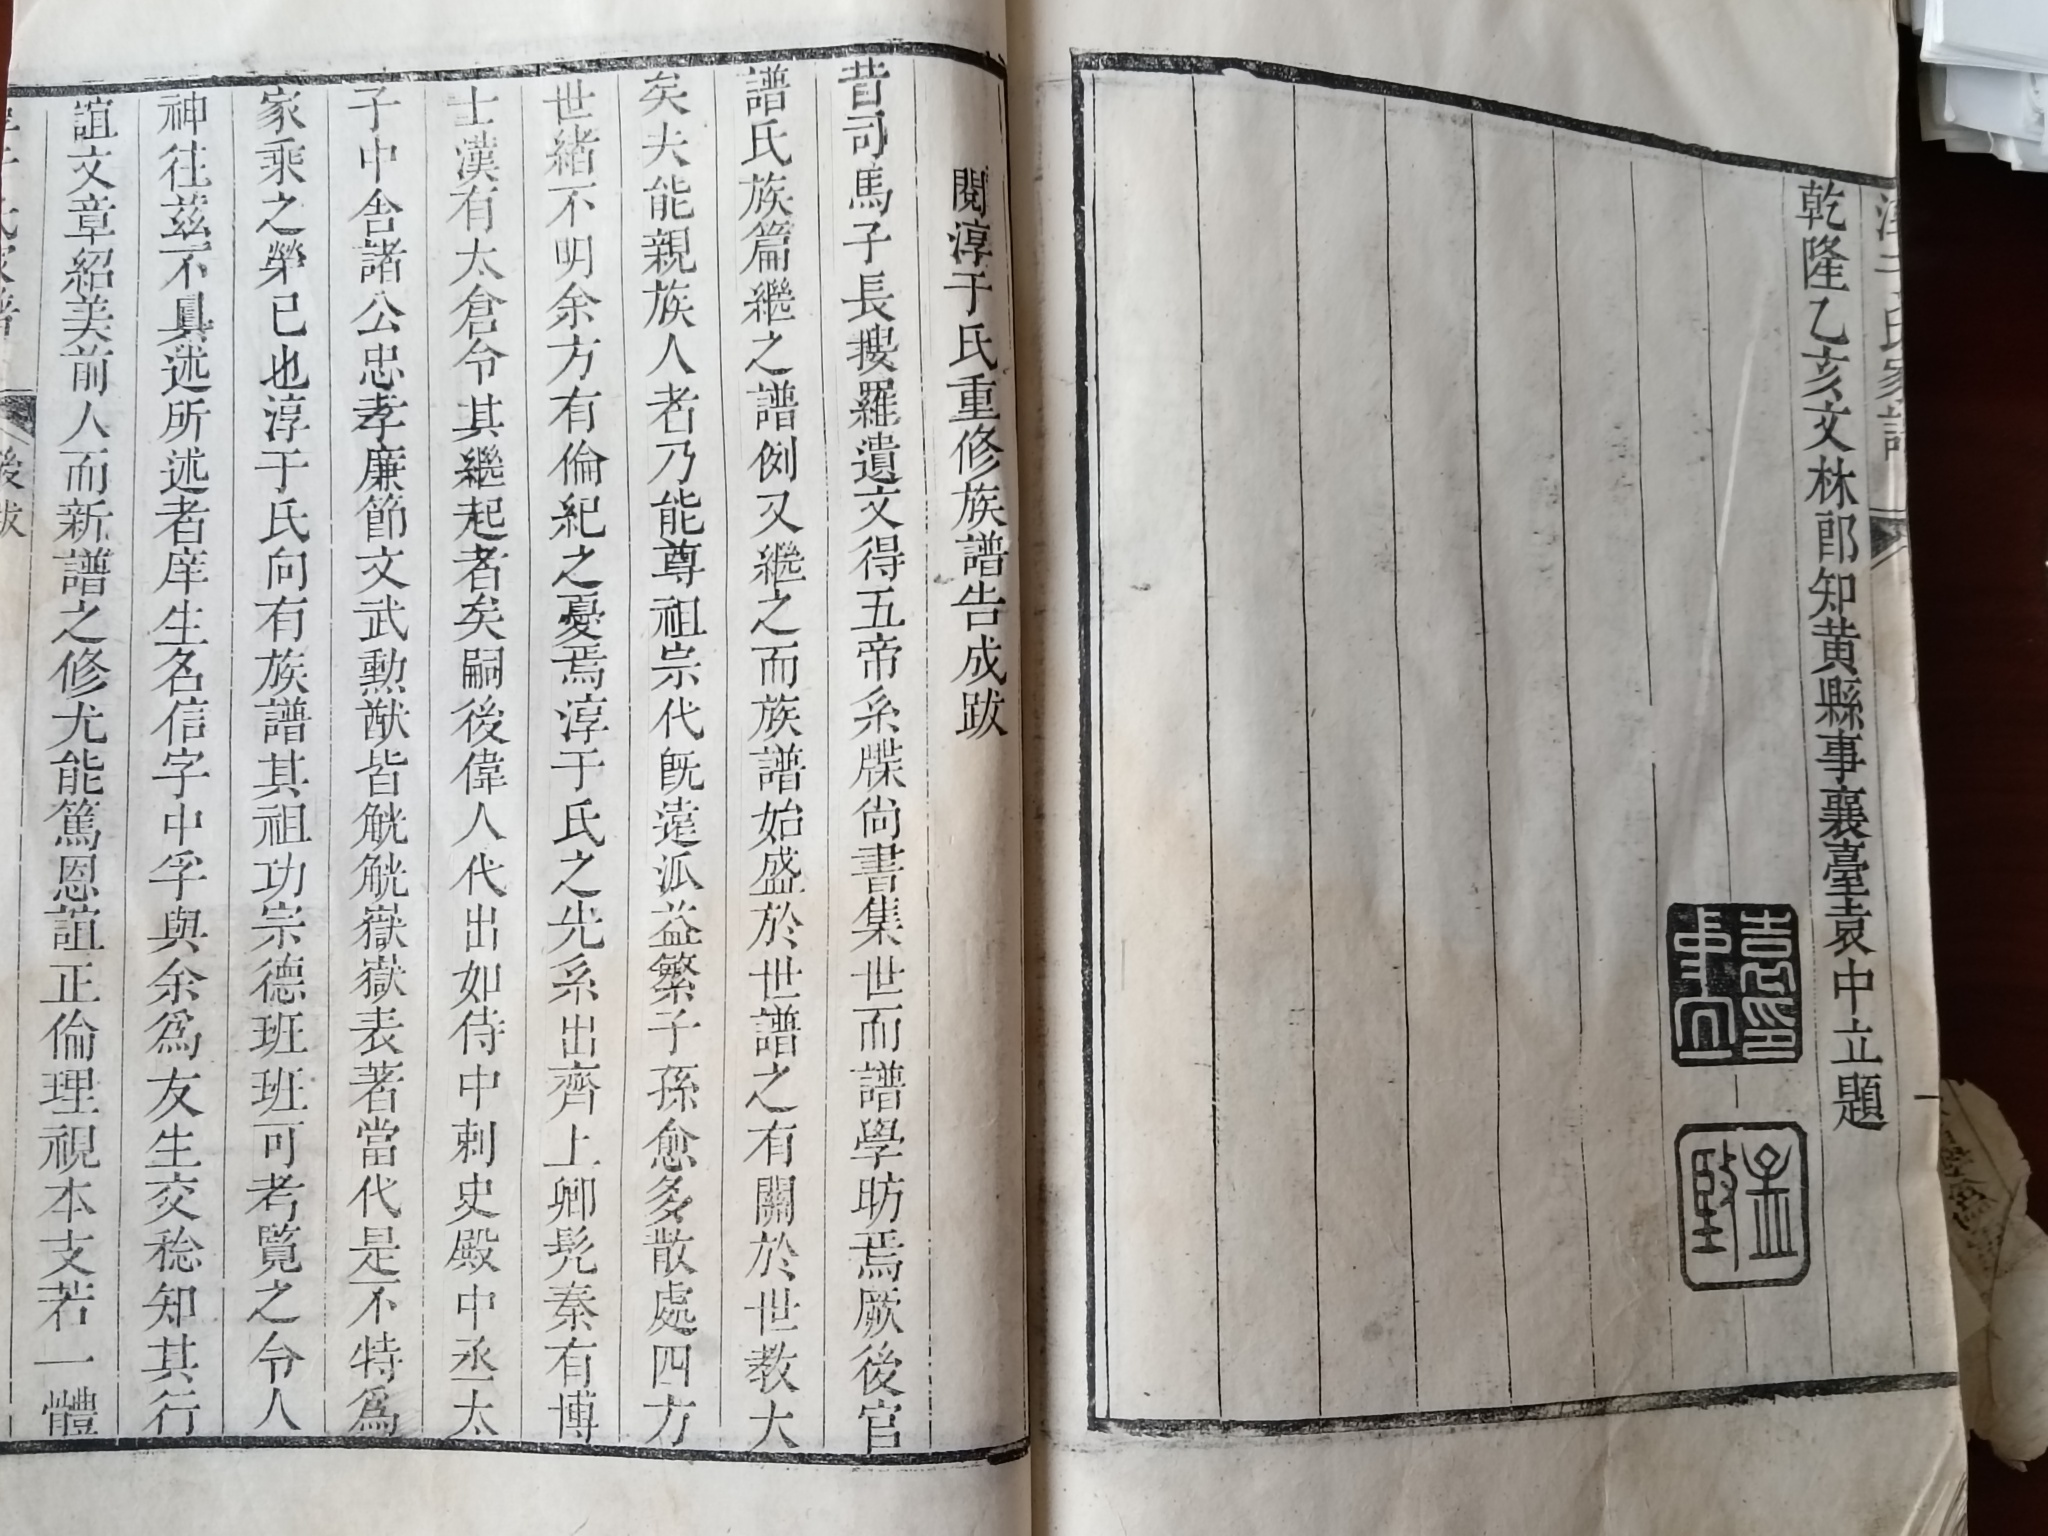 乾隆乙亥文林郎知黃縣事襄臺袁中立題
閱淳于氏重修族譜告成跋
昔司馬子長搜羅遺文得五帝系牒尚書集世而譜學昉焉厥後官
譜氏族篇繼之譜例又繼之而族譜始盛於世譜之有關於世教大
矣夫能親族人者乃能尊祖宗代旣遠派益繁子孫愈多散處四方
世緒不明余方有倫紀之憂焉淳于氏之先系出齊上卿髡秦有博
士漢有太倉令其繼起者矣嗣後偉人代出如侍中刺史殿中丞太
子中舍諸公忠孝廉節文武勳猷皆觥觥嶽嶽表著當代是不特爲
家乘之榮已也淳于氏向有族譜其祖功宗德班班可考覽之令人
神往茲不具述所述者庠生名信字中孚與余爲友生交稔知其行
誼文章紹美前人而新譜之修尤能篤恩誼正倫理視本支若一體
後跋